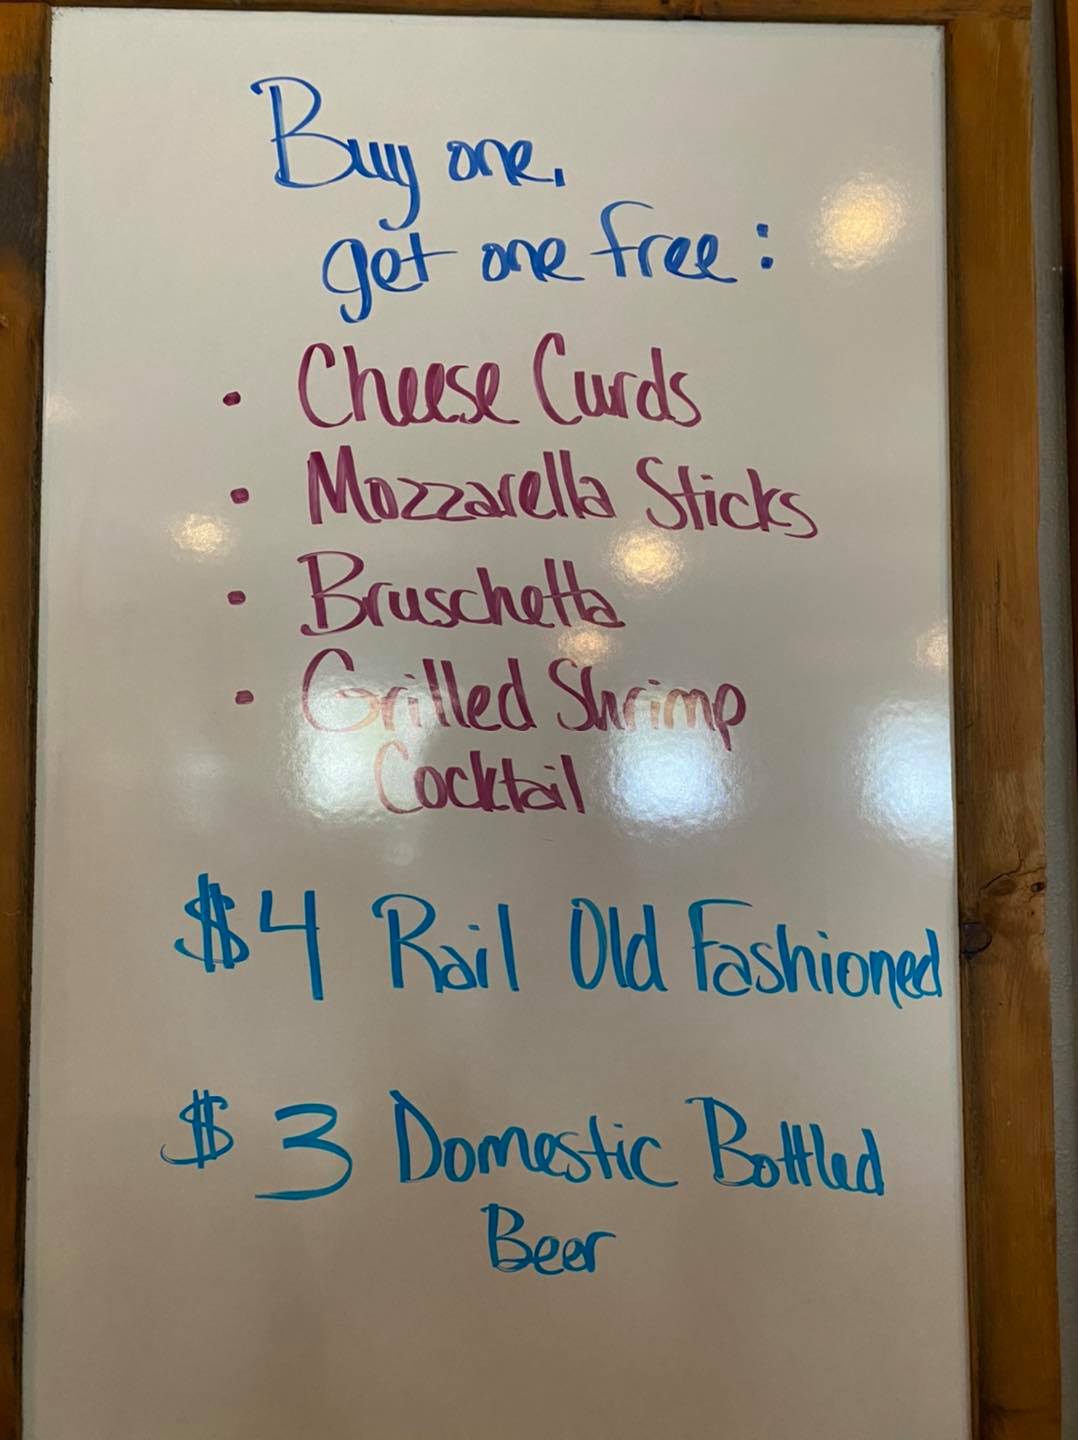 Buy one,
get one free:
• Cheese Curds
• Mozzarella Sticks
• Bruschetta
• Grilled Shrimp
Cocktail
$4 Rail Old Fashioned
$3 Domestic Bottled
Beer